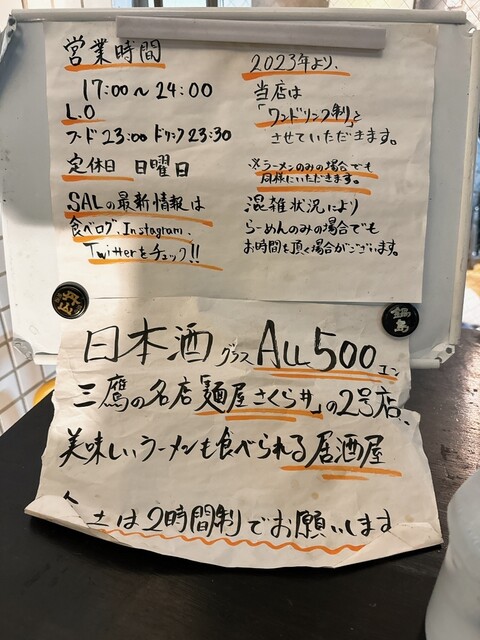 営業時間
17:00～24:00
L.O
フード23:00 ドリンク23:30
定休日 日曜日
SALの最新情報は
食べログ、Instagram、
Twitterをチェック!!
2023年より、
当店は
「ワンドリンク制」と
させていただきます。
※ラーメンのみの場合でも
同様にいただきます。
混雑状況により
らーめんのみの場合でも
お時間を頂く場合がございます。
鍋島
日本酒グラスALL500エン
三鷹の名店「麺屋さくら井」の2号店、
美味しいラーメンも食べられる居酒屋
は2時間制でお願いします